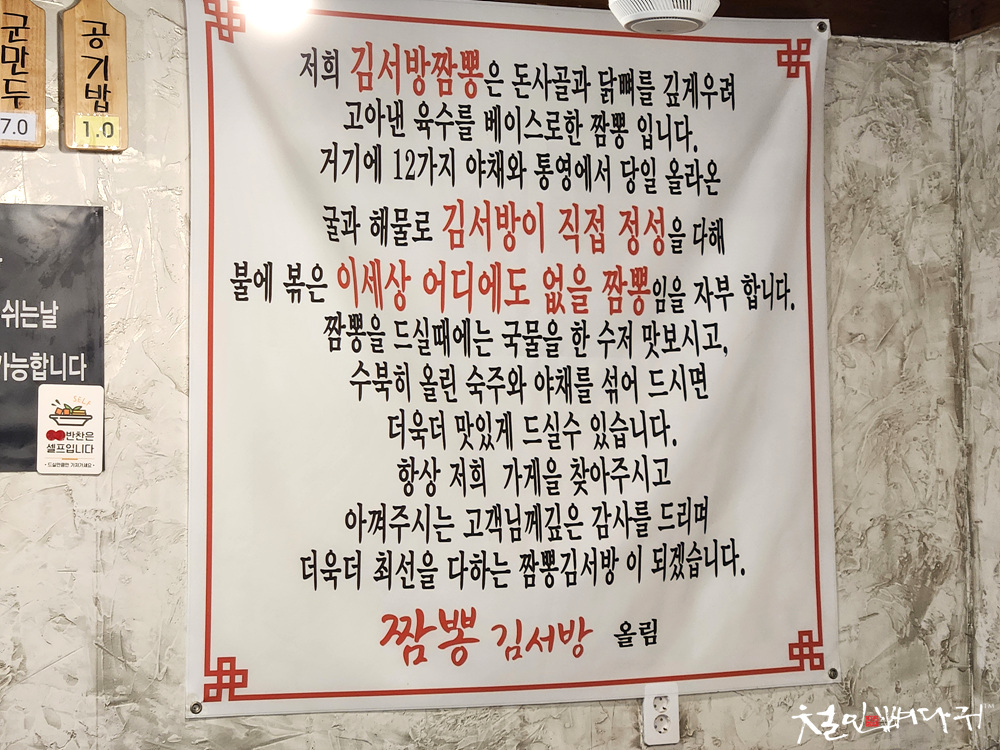 군만두
7.0
공기밥
1.0
저희 김서방짬뽕은 돈사골과 닭뼈를 깊게우려
고아낸 육수를 베이스로한 짬뽕 입니다.
거기에 12가지 야채와 통영에서 당일 올라온
굴과 해물로 김서방이 직접 정성을 다해
불에 볶은 이세상 어디에도 없을 짬뽕임을 자부 합니다.
짬뽕을 드실때에는 국물을 한 수저 맛보시고,
수북히 올린 숙주와 야채를 섞어 드시면
더욱더 맛있게 드실수 있습니다.
항상 저희 가게을 찾아주시고
아껴주시는 고객님께깊은 감사를 드리며
더욱더 최선을 다하는 짬뽕김서방 이 되겠습니다.
짬뽕 김서방 올림
쉬는날
가능합니다
SELF
반찬은
셀프입니다
• 드실만큼만 가져가세요 •
철민뼈다귀™